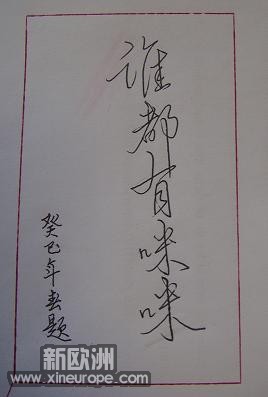 谁都有咪咪
癸巳年春题
新欧洲
www.xineurope.com